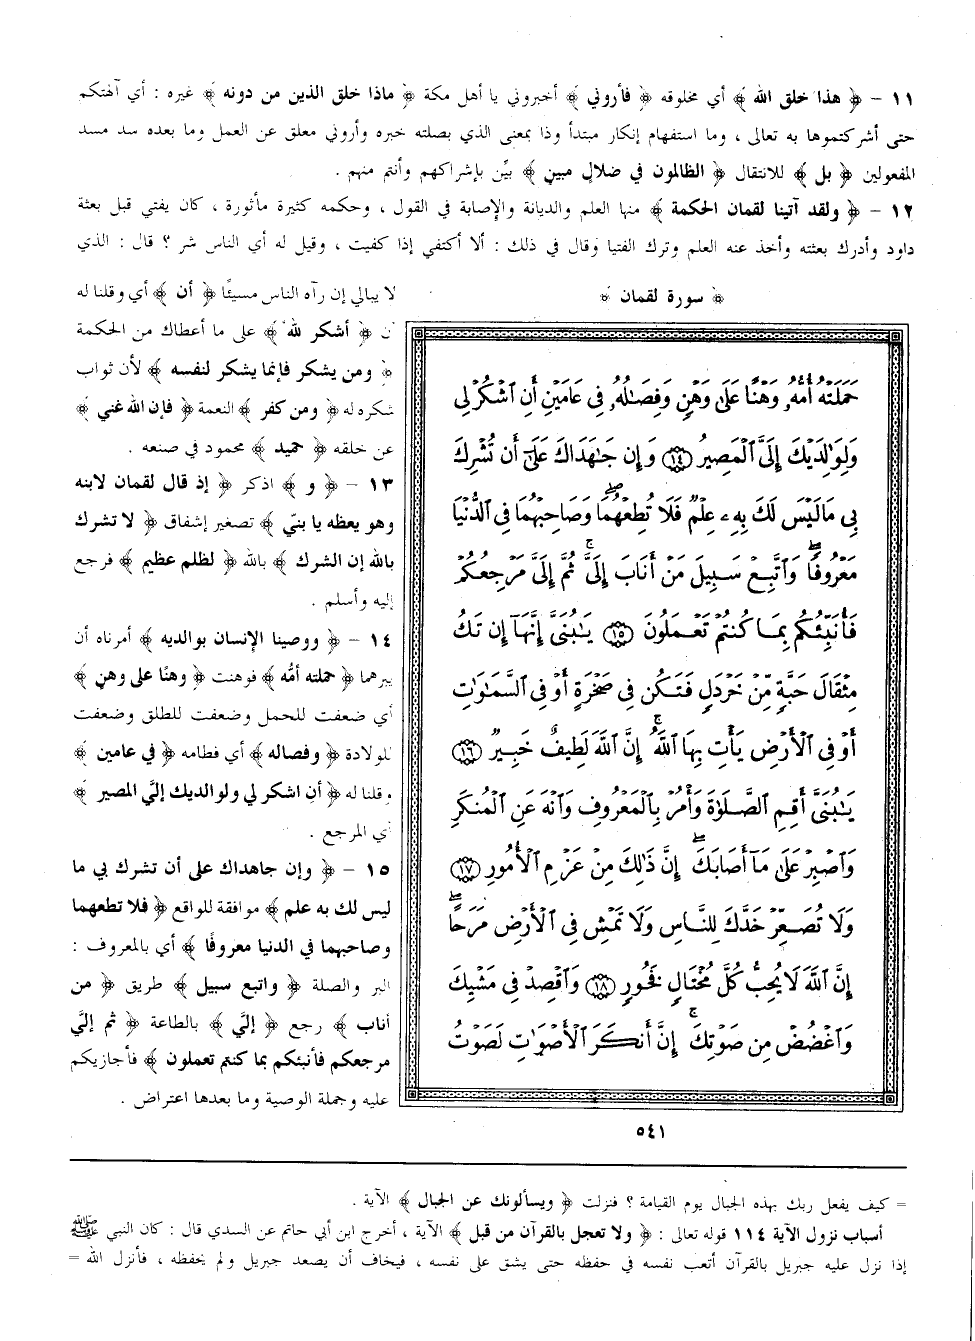 ١١ - ﴿ هذا خلق الله ﴾ أي مخلوقه ﴿ فأروني ﴾ أخبروني يا أهل مكة ﴿ ماذا خلق الذين من دونه ﴾ غيره : أي آلهتكم
حتى أشركتموها به تعالى ، وما استفهام إنكار مبتدأ وذا بمعنى الذي بصلته خبره وأروني معلق عن العمل وما بعده سد مسد
المفعولين ﴿ بل ﴾ للانتقال ﴿ الظالمون في ضلالٍ مبين ﴾ بيِّن بإشراكهم وأنتم منهم .
١٢ - ﴿ ولقد آتينا لقمان الحكمة ﴾ منها العلم والديانة والإصابة في القول ، وحكمه كثيرة مأثورة ، كان يفتي قبل بعثة
داود وأدرك بعثته وأخذ عنه العلم وترك الفتيا وقال في ذلك : ألا أكتفي إذا كفيت ، وقيل له أي الناس شر ؟ قال : الذي
لا يبالي إن رآه الناس مسيئًا ﴿ أن ﴾ أي وقلنا له
أن ﴿ أشكر لله ﴾ على ما أعطاك من الحكمة
﴿ ومن يشكر فإنما يشكر لنفسه ﴾ لأن ثواب
شكره له ﴿ ومن كفر ﴾ النعمة ﴿ فإن الله غني ﴾
عن خلقه ﴿ حميد ﴾ محمود في صنعه .
١٣ - ﴿ و ﴾ اذكر ﴿ إذ قال لقمان لابنه
وهو يعظه يا بنيّ ﴾ تصغير إشفاق ﴿ لا تشرك
بالله إن الشرك ﴾ بالله ﴿ لظلم عظيم ﴾ فرجع
إليه وأسلم .
١٤ - ﴿ ووصينا الإنسان بوالديه ﴾ أمرناه أن
يبرهما ﴿ حملته أمُّه ﴾ فوهنت ﴿ وهنًا على وهن ﴾
أي ضعفت للحمل وضعفت للطلق وضعفت
للولادة ﴿ وفصاله ﴾ أي فطامه ﴿ في عامين ﴾
وقلنا له ﴿ أنِ اشكر لي ولوالديك إليَّ المصير ﴾
أي المرجع .
١٥ - ﴿ وإن جاهداك على أن تشرك بي ما
ليس لك به علم ﴾ موافقة للواقع ﴿ فلا تطعهما
وصاحبهما في الدنيا معروفًا ﴾ أي بالمعروف :
البر والصلة ﴿ واتبع سبيل ﴾ طريق ﴿ من
أناب ﴾ رجع ﴿ إليَّ ﴾ بالطاعة ﴿ ثم إليَّ
مرجعكم فأنبئكم بما كنتم تعملون ﴾ فأجازيكم
عليه وجملة الوصية وما بعدها اعتراض .
﴿ سورة لقمان ﴾
حَمَلَتْهُ أُمُّهُۥ وَهْنًا عَلَىٰ وَهْنٍ وَفِصَٰلُهُۥ فِى عَامَيْنِ أَنِ ٱشْكُرْ لِى
وَلِوَٰلِدَيْكَ إِلَىَّ ٱلْمَصِيرُ ١٤ وَإِن جَٰهَدَاكَ عَلَىٰٓ أَن تُشْرِكَ
بِى مَا لَيْسَ لَكَ بِهِۦ عِلْمٌ فَلَا تُطِعْهُمَاۖ وَصَاحِبْهُمَا فِى ٱلدُّنْيَا
مَعْرُوفًاۖ وَٱتَّبِعْ سَبِيلَ مَنْ أَنَابَ إِلَىَّۚ ثُمَّ إِلَىَّ مَرْجِعُكُمْ
فَأُنَبِّئُكُم بِمَا كُنتُمْ تَعْمَلُونَ ١٥ يَٰبُنَىَّ إِنَّهَآ إِن تَكُ
مِثْقَالَ حَبَّةٍ مِّنْ خَرْدَلٍ فَتَكُن فِى صَخْرَةٍ أَوْ فِى ٱلسَّمَٰوَٰتِ
أَوْ فِى ٱلْأَرْضِ يَأْتِ بِهَا ٱللَّهُۚ إِنَّ ٱللَّهَ لَطِيفٌ خَبِيرٌ ١٦
يَٰبُنَىَّ أَقِمِ ٱلصَّلَوٰةَ وَأْمُرْ بِٱلْمَعْرُوفِ وَٱنْهَ عَنِ ٱلْمُنكَرِ
وَٱصْبِرْ عَلَىٰ مَآ أَصَابَكَۖ إِنَّ ذَٰلِكَ مِنْ عَزْمِ ٱلْأُمُورِ ١٧
وَلَا تُصَعِّرْ خَدَّكَ لِلنَّاسِ وَلَا تَمْشِ فِى ٱلْأَرْضِ مَرَحًاۖ
إِنَّ ٱللَّهَ لَا يُحِبُّ كُلَّ مُخْتَالٍ فَخُورٍ ١٨ وَٱقْصِدْ فِى مَشْيِكَ
وَٱغْضُضْ مِن صَوْتِكَۚ إِنَّ أَنكَرَ ٱلْأَصْوَٰتِ لَصَوْتُ
٥٤١
= كيف يفعل ربك بهذه الجبال يوم القيامة ؟ فنزلت ﴿ ويسألونك عن الجبال ﴾ الآية .
أسباب نزول الآية ١١٤ قوله تعالى : ﴿ ولا تعجل بالقرآن من قبل ﴾ الآية ، أخرج ابن أبي حاتم عن السدي قال : كان النبي ﷺ
إذا نزل عليه جبريل بالقرآن أتعب نفسه في حفظه حتى يشق على نفسه ، فيخاف أن يصعد جبريل ولم يحفظه ، فأنزل الله =